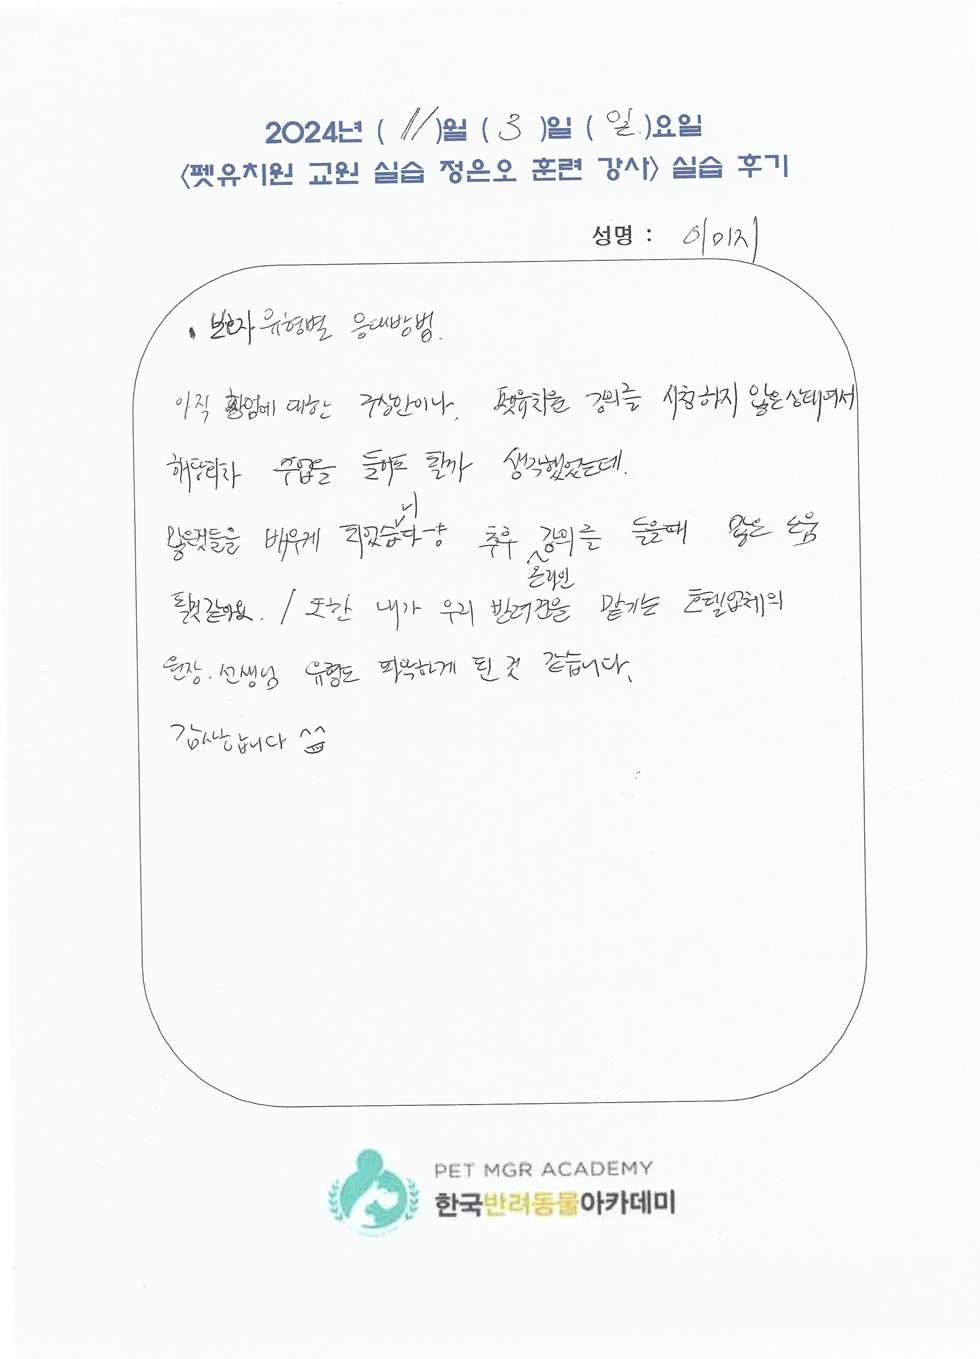 2024년 ( 11 )월 ( 3 )일 ( 일 )요일
<펫유치원 교원 실습 정은오 훈련 강사> 실습 후기
성명 : 이미지
• 보호자 유형별 응대방법.
아직 창업에 대한 구상안이나, 펫유치원 강의를 시청하지 않은상태에서
해당회차 수업을 들어도 될까 생각했었는데.
많은것들을 배우게 되었습니다 추후 온라인 강의를 들을때 많은 도움
될것같아요. / 또한 내가 우리 반려견을 맡기는 호텔업체의
원장.선생님 유형도 파악하게 된 것 같습니다.
감사합니다 ^^
PET MGR ACADEMY
한국반려동물아카데미